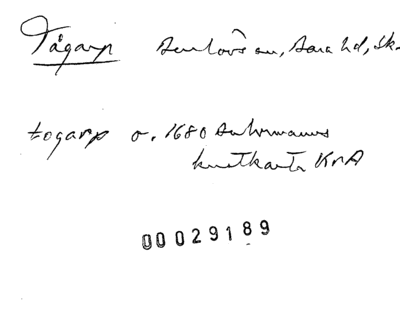 Tågarp Benlövs sn, Bara hd, Sk.
togarp o. 1680 Buhrmanns
knutkarta KrA
00029189